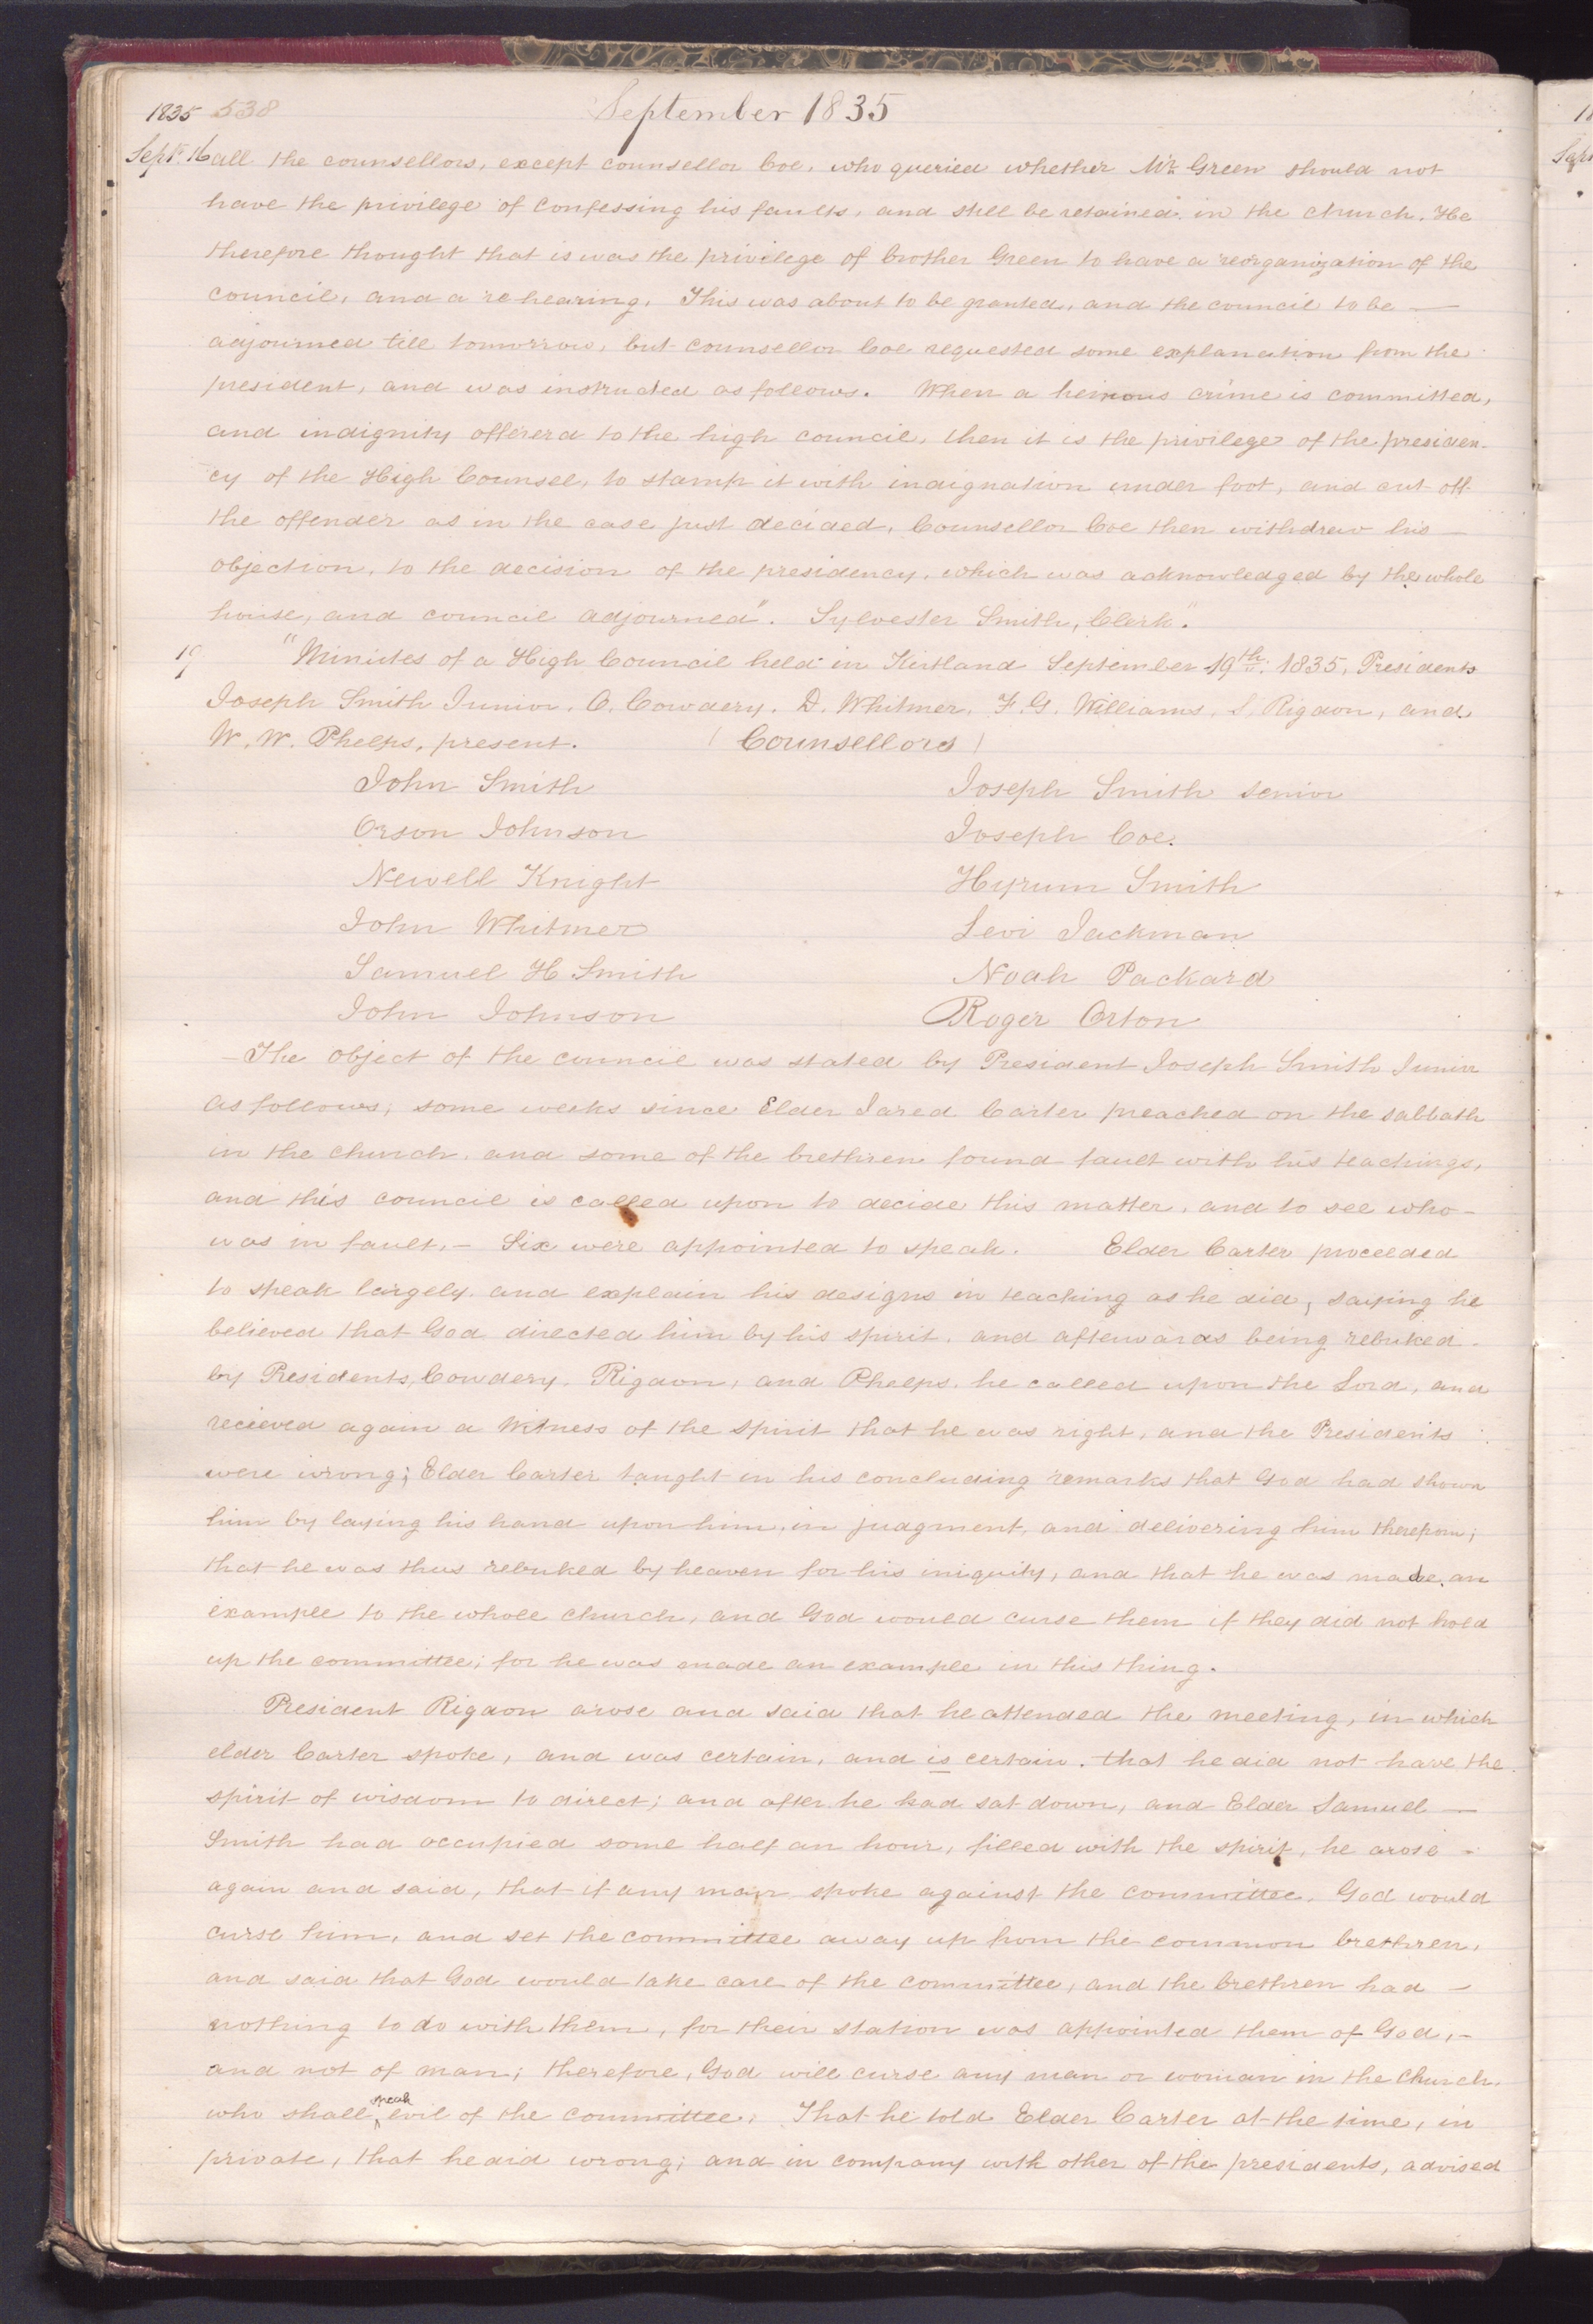 1835 538 September 1835
Sept. 16 all the counsellors, except counsellor Coe, who queried whether Mr. Green should not
have the privilege of confessing his faults, and still be retained in the church. He
therefore thought that is was the privilege of brother Green to have a reorganization of the
council, and a rehearing. This was about to be granted, and the council to be —
adjourned till tomorrow, but counsellor Coe requested some explanation from the
president, and was instructed as follows. When a heinous crime is committed,
and indignity offererd to the high council, then it is the privilege of the presiden-
cy of the High Counsel, to stamp it with indignation under foot, and cut off
the offender as in the case just decided. Counsellor Coe then withdrew his —
objection, to the decision of the presidency, which was acknowledged by the whole
house, and council adjourned". Sylvester Smith, Clerk."
19 "Minutes of a High Council held in Kirtland September 19th. 1835, Presidents
Joseph Smith Junior, O. Cowdery, D. Whitmer, F. G. Williams, S. Rigdon, and
W. W. Phelps, present. (Counsellors)
John Smith Joseph Smith senior
Orson Johnson Joseph Coe.
Newell Knight Hyrum Smith
John Whitmer Levi Jackman
Samuel H Smith Noah Packard
John Johnson Roger Orton
—The object of the council was stated by President Joseph Smith Junior
as follows; some weeks since Elder Jared Carter preached on the sabbath
in the church, and some of the brethren found fault with his teachings,
and this council is called upon to decide this matter, and to see who -
was in fault. – Six were appointed to speak. Elder Carter proceeded
to speak largely and explain his designs in teaching as he did, saying he
believed that God directed him by his spirit, and afterwards being rebuked
by Presidents, Cowdery, Rigdon, and Phelps, he called upon the Lord, and
recieved again a witness of the spirit that he was right, and the Presidents
were wrong; Elder Carter taught in his concluding remarks that God had shown
him by laying his hand upon him, in judgment, and delivering him therefrom;
that he was thus rebuked by heaven for his iniquity, and that he was made an
example to the whole church, and God would curse them if they did not hold
up the committee; for he was made an example in this thing.
President Rigdon arose and said that he attended the meeting, in which
elder Carter spoke, and was certain, and is certain, that he did not have the
spirit of wisdom to direct; and after he had sat down, and Elder Samuel —
Smith had occupied some half an hour, filled with the spirit, he arose -
again and said, that if any man spoke against the committee, God would
curse him, and set the committee away up from the common brethren,
and said that God would take care of the committee, and the brethren had —
nothing to do with them, for their station was appointed them of God, -
and not of man; therefore, God will curse any man or woman in the church,
who shall speak evil of the committee; That he told Elder Carter at the time, in
private, that he did wrong; and in company with other of the presidents, advised